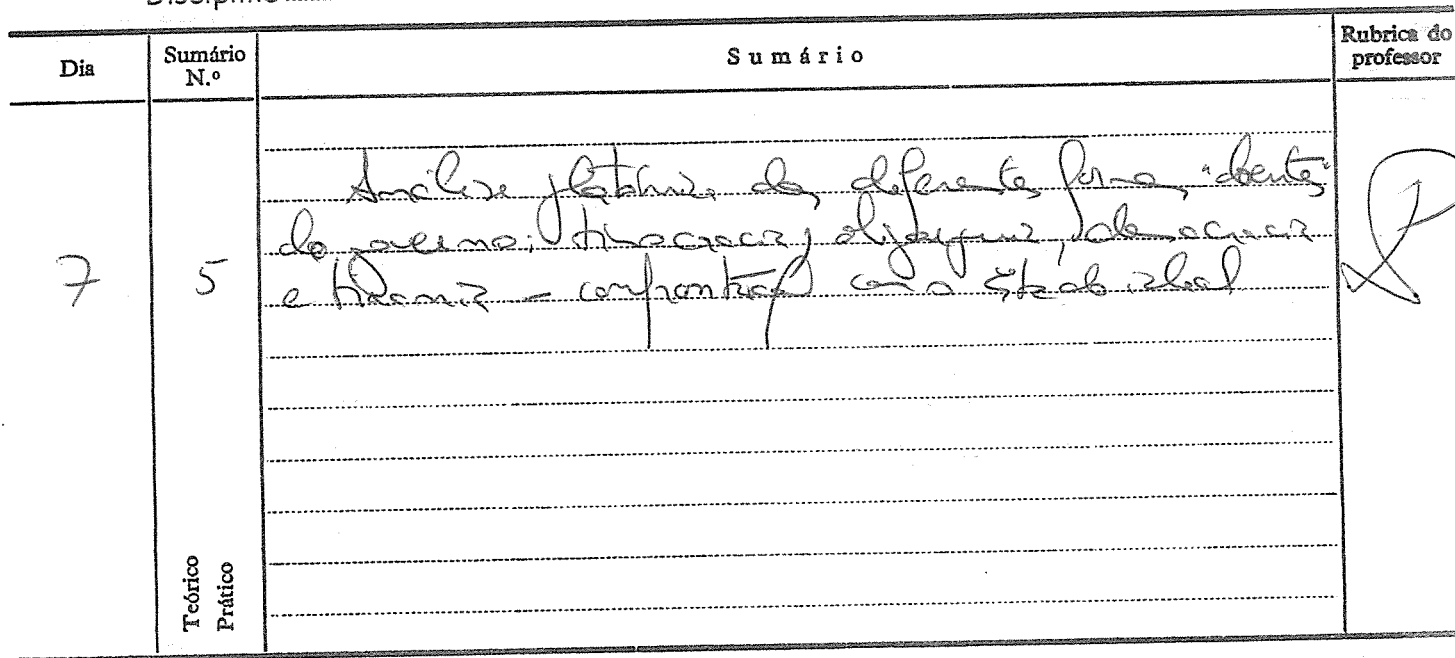 Dia
Sumário N.º
Sumário
Rubrica do professor
Análise platónica das diferentes formas "doentes"
de governo: timocracia, oligarquia, democracia
e tirania – confrontração com o Estado ideal
7
5
Teórico
Prático